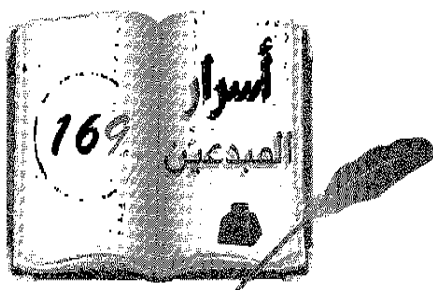 169
أسرار
المبدعين